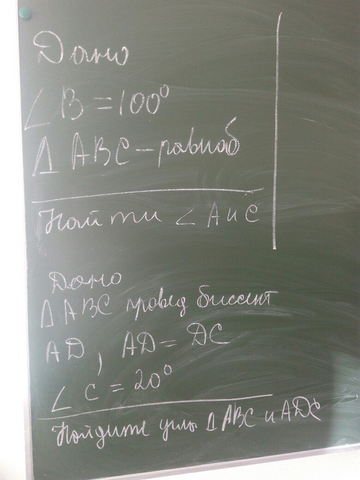 Дано
∠B=100°
Δ ABC – равноб
Найти ∠ A и C
Дано
Δ ABC провед биссект
AD, AD = DC
∠ C = 20°
Найдите углы Δ ABC и ADC